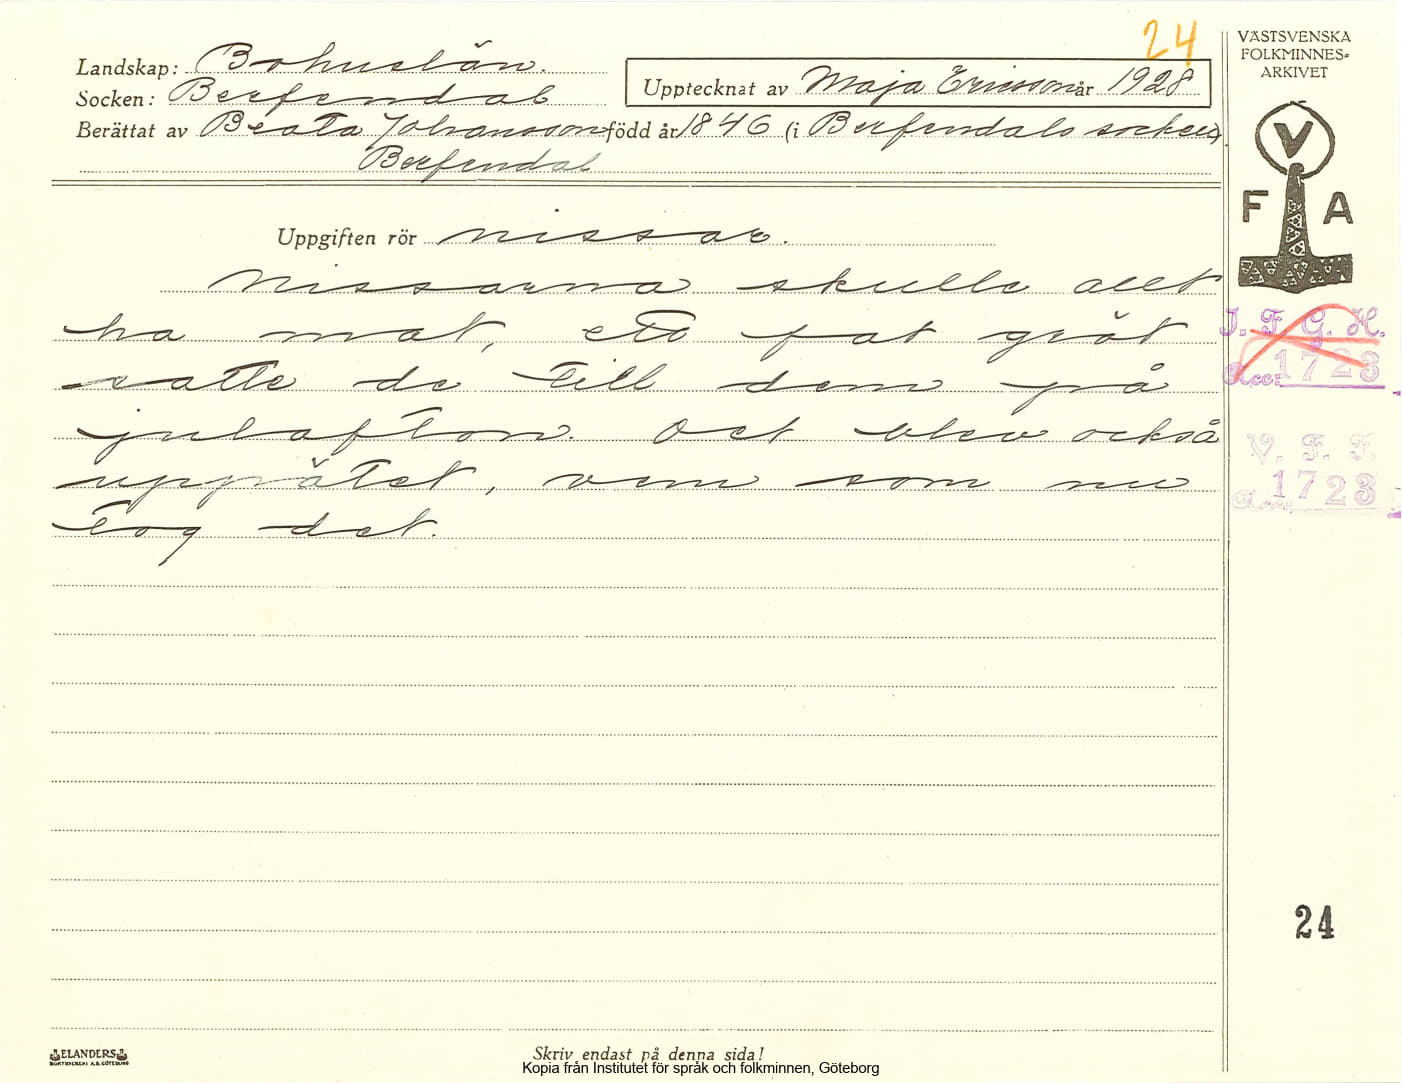 24
VÄSTSVENSKA
FOLKMINNES-
ARKIVET
Landskap: Bohuslän.
Socken: Berfendal
Upptecknat av Maja Ericsson år 1928
Berättat av Beata Johansson född år 1846 (i Berfendals socken)
Berfendal
V
F A
Uppgiften rör nissar.
Nissarna skulle allt
ha mat, ett fat gröt
satte de till dem på
julafton. Det blev också
uppätet, vem som nu
tog det.
I. F. G. H.
Acc: 1723
V. F. F.
Acc: 1723
24
ELANDERS
BOKTRYCKERI A.B. GÖTEBORG
Skriv endast på denna sida!
Kopia från Institutet för språk och folkminnen, Göteborg